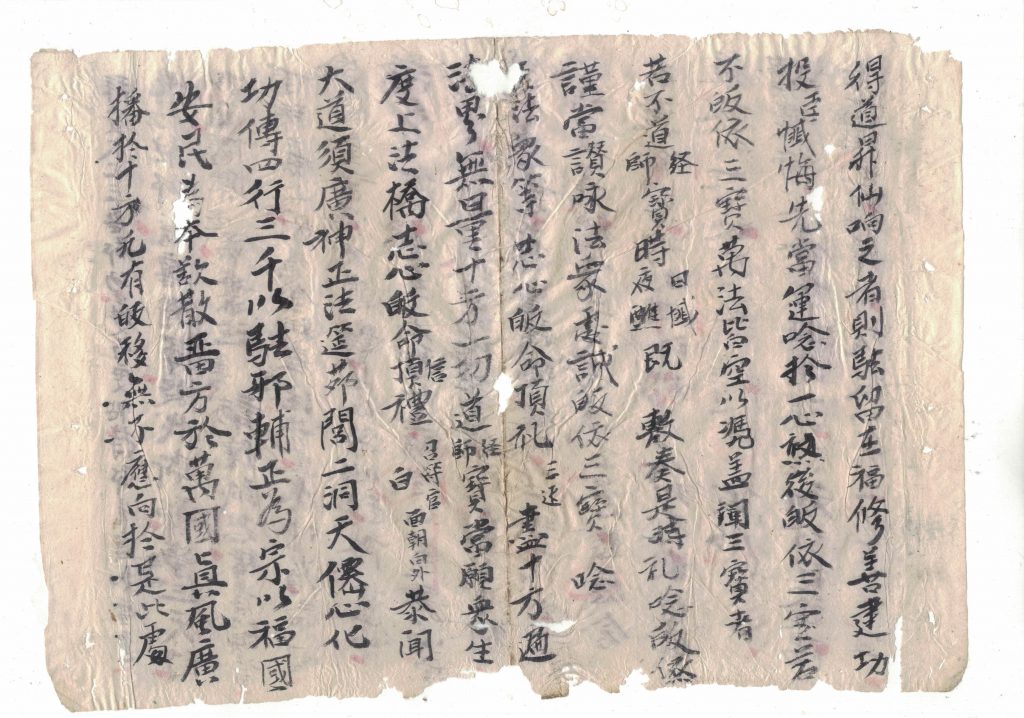 得道昇仙响之者則駐留在福修善建功
投告懴悔先當運念扵一心然後皈依三宝若
不皈依三寶萬法皆空以凴盖聞三寶者
若不道経師寶時日夜懴醮既 敷奏是時礼念皈依
謹當讃咏法衆虔誠皈依三寶 唸
法衆等 志心皈命頂礼 三返 盡十方遍
法界無日重十方一切道経師寶當願衆生
度上法橋志心皈命頂禮 信 白 召符官 面朝外 恭聞
大道須廣神正法筵茆閭二洞天僊心化
功傳四行三千以駐邪輔正為宗以福國
安民為本欵散畨方於萬國眞風廣
播扵十方元有皈移無不應向扵是此處